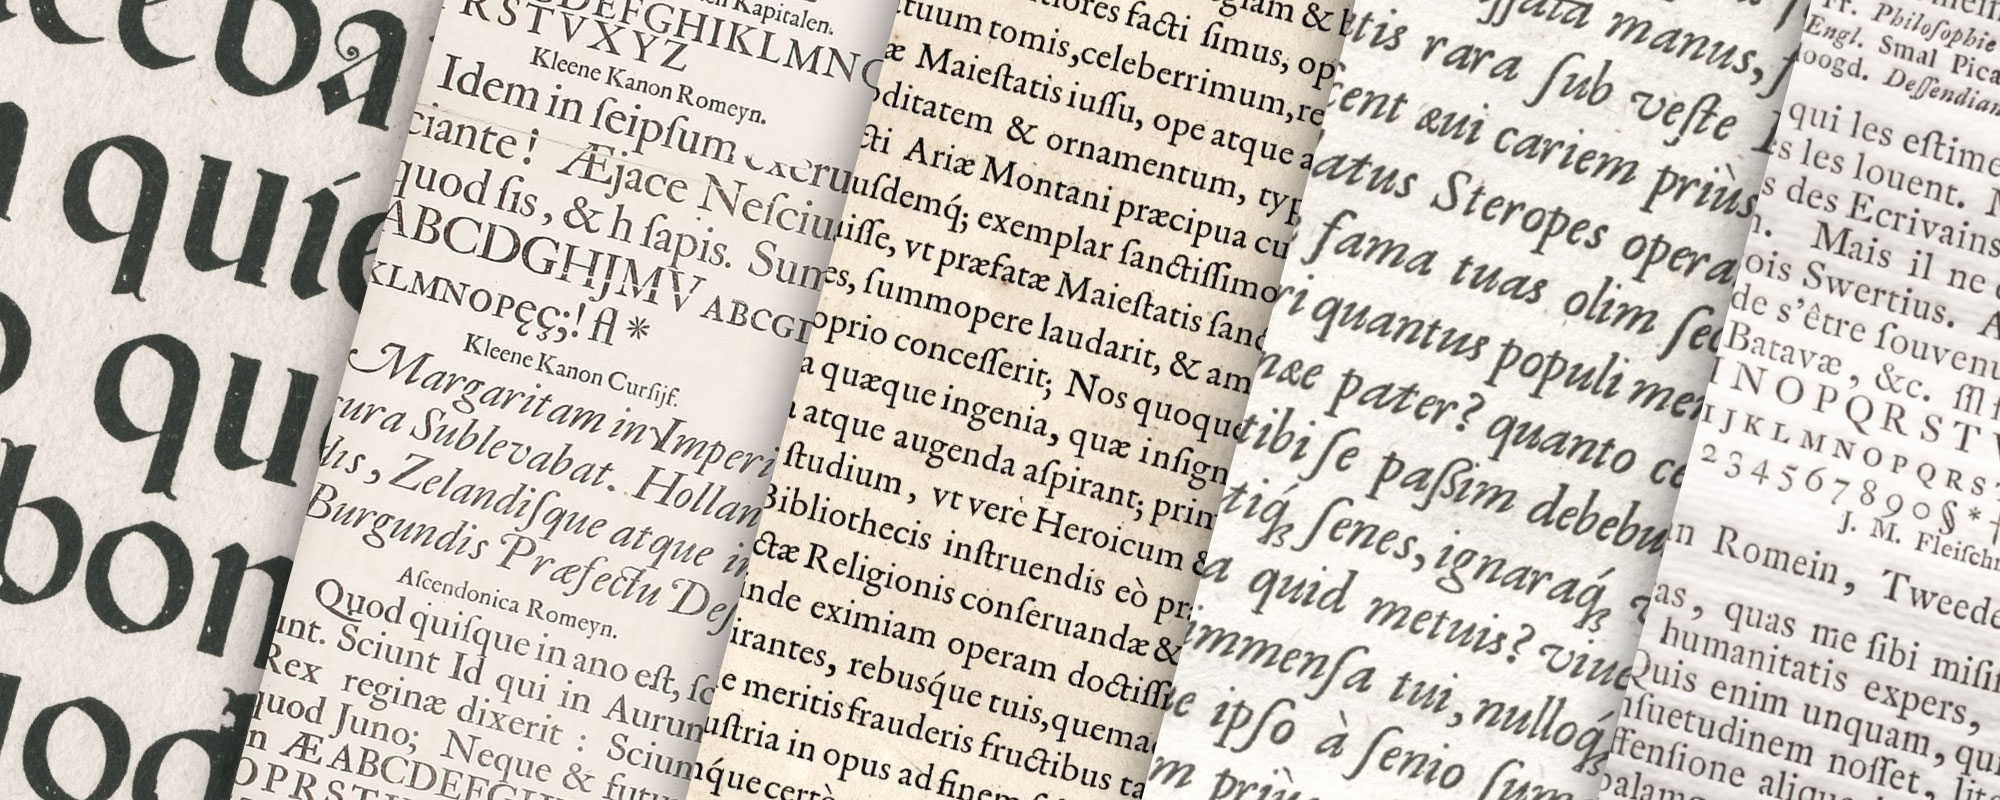 ceba
quíe
qu
bon
quod
Kapitalen.
DEFGHIKLMNO
RSTVXYZ
Kleene Kanon Romeyn.
Idem in ſeipſum exeru
ciante! Æjace Neſciu
quod ſis, & h ſapis. Sum
ABCDGHJMV ABCGI
KLMNOPĘÇ;! ſl *
Kleene Kanon Curſijf.
Margaritam in Imperi
ura Sublevabat. Hollan
dis, Zelandiſque atque in
Burgundis Præfectu Deſ
Aſcendonica Romeyn.
Quod quiſque in ano eſt, ſc
unt. Sciunt Id qui in Aurum
Rex reginæ dixerit : Sciunt
quod Juno; Neque & futu
n ÆABCDEFGH
OPRST
giam & l
tiores facti ſimus, op
tuum tomis, celeberrimum, re
æ Maieſtatis iuſſu, ope atque a
oditatem & ornamentum, typ
cti Ariæ Montani præcipua cu
uſdemq́; exemplar ſanctiſſimo
uiſſe, vt præfatæ Maieſtatis ſanc
es, ſummopere laudarit, & am
oprio conceſſerit; Nos quoque
a quæque ingenia, quæ inſign
atque augenda aſpirant; prim
ſtudium, vt verè Heroicum &
Bibliothecis inſtruendis eò pr
ctæ Religionis conſeruandæ &
inde eximiam operam doctiſſi
irantes, rebuśque tuis, quema
e meritis frauderis fructibus ta
uſtria in opus ad finem
nq́ue certè
manus, ſ
tis rara ſub veſte
cent æui cariem priùs
atus Steropes opera
fama tuas olim ſec
ri quantus populi mer
næ pater? quanto ce
tibi ſe paſſim debebu
tiq́ʒ ſenes, ignaraq́ʒ v
a quid metuis? viue
immenſa tui, nulloq́ʒ
e ipſo à ſenio ſum
m priùs
Fr. Philoſophie
Engl. Smal Pica
Hoogd. Deſſendian
qui les eſtime
s les louent. M
s des Ecrivains
n. Mais il ne
ois Swertius. A
de s'être ſouvenu
Batavæ, &c. ſſl
INOPQRSTV
IJKLMNOPQRST
234567890§*†
J. M. Fleiſch
n Romein, Tweede
as, quas me ſibi miſit
humanitatis expers,
Quis enim unquam, qui
nſuetudinem noſſet, lit
ffenſione alique
palam